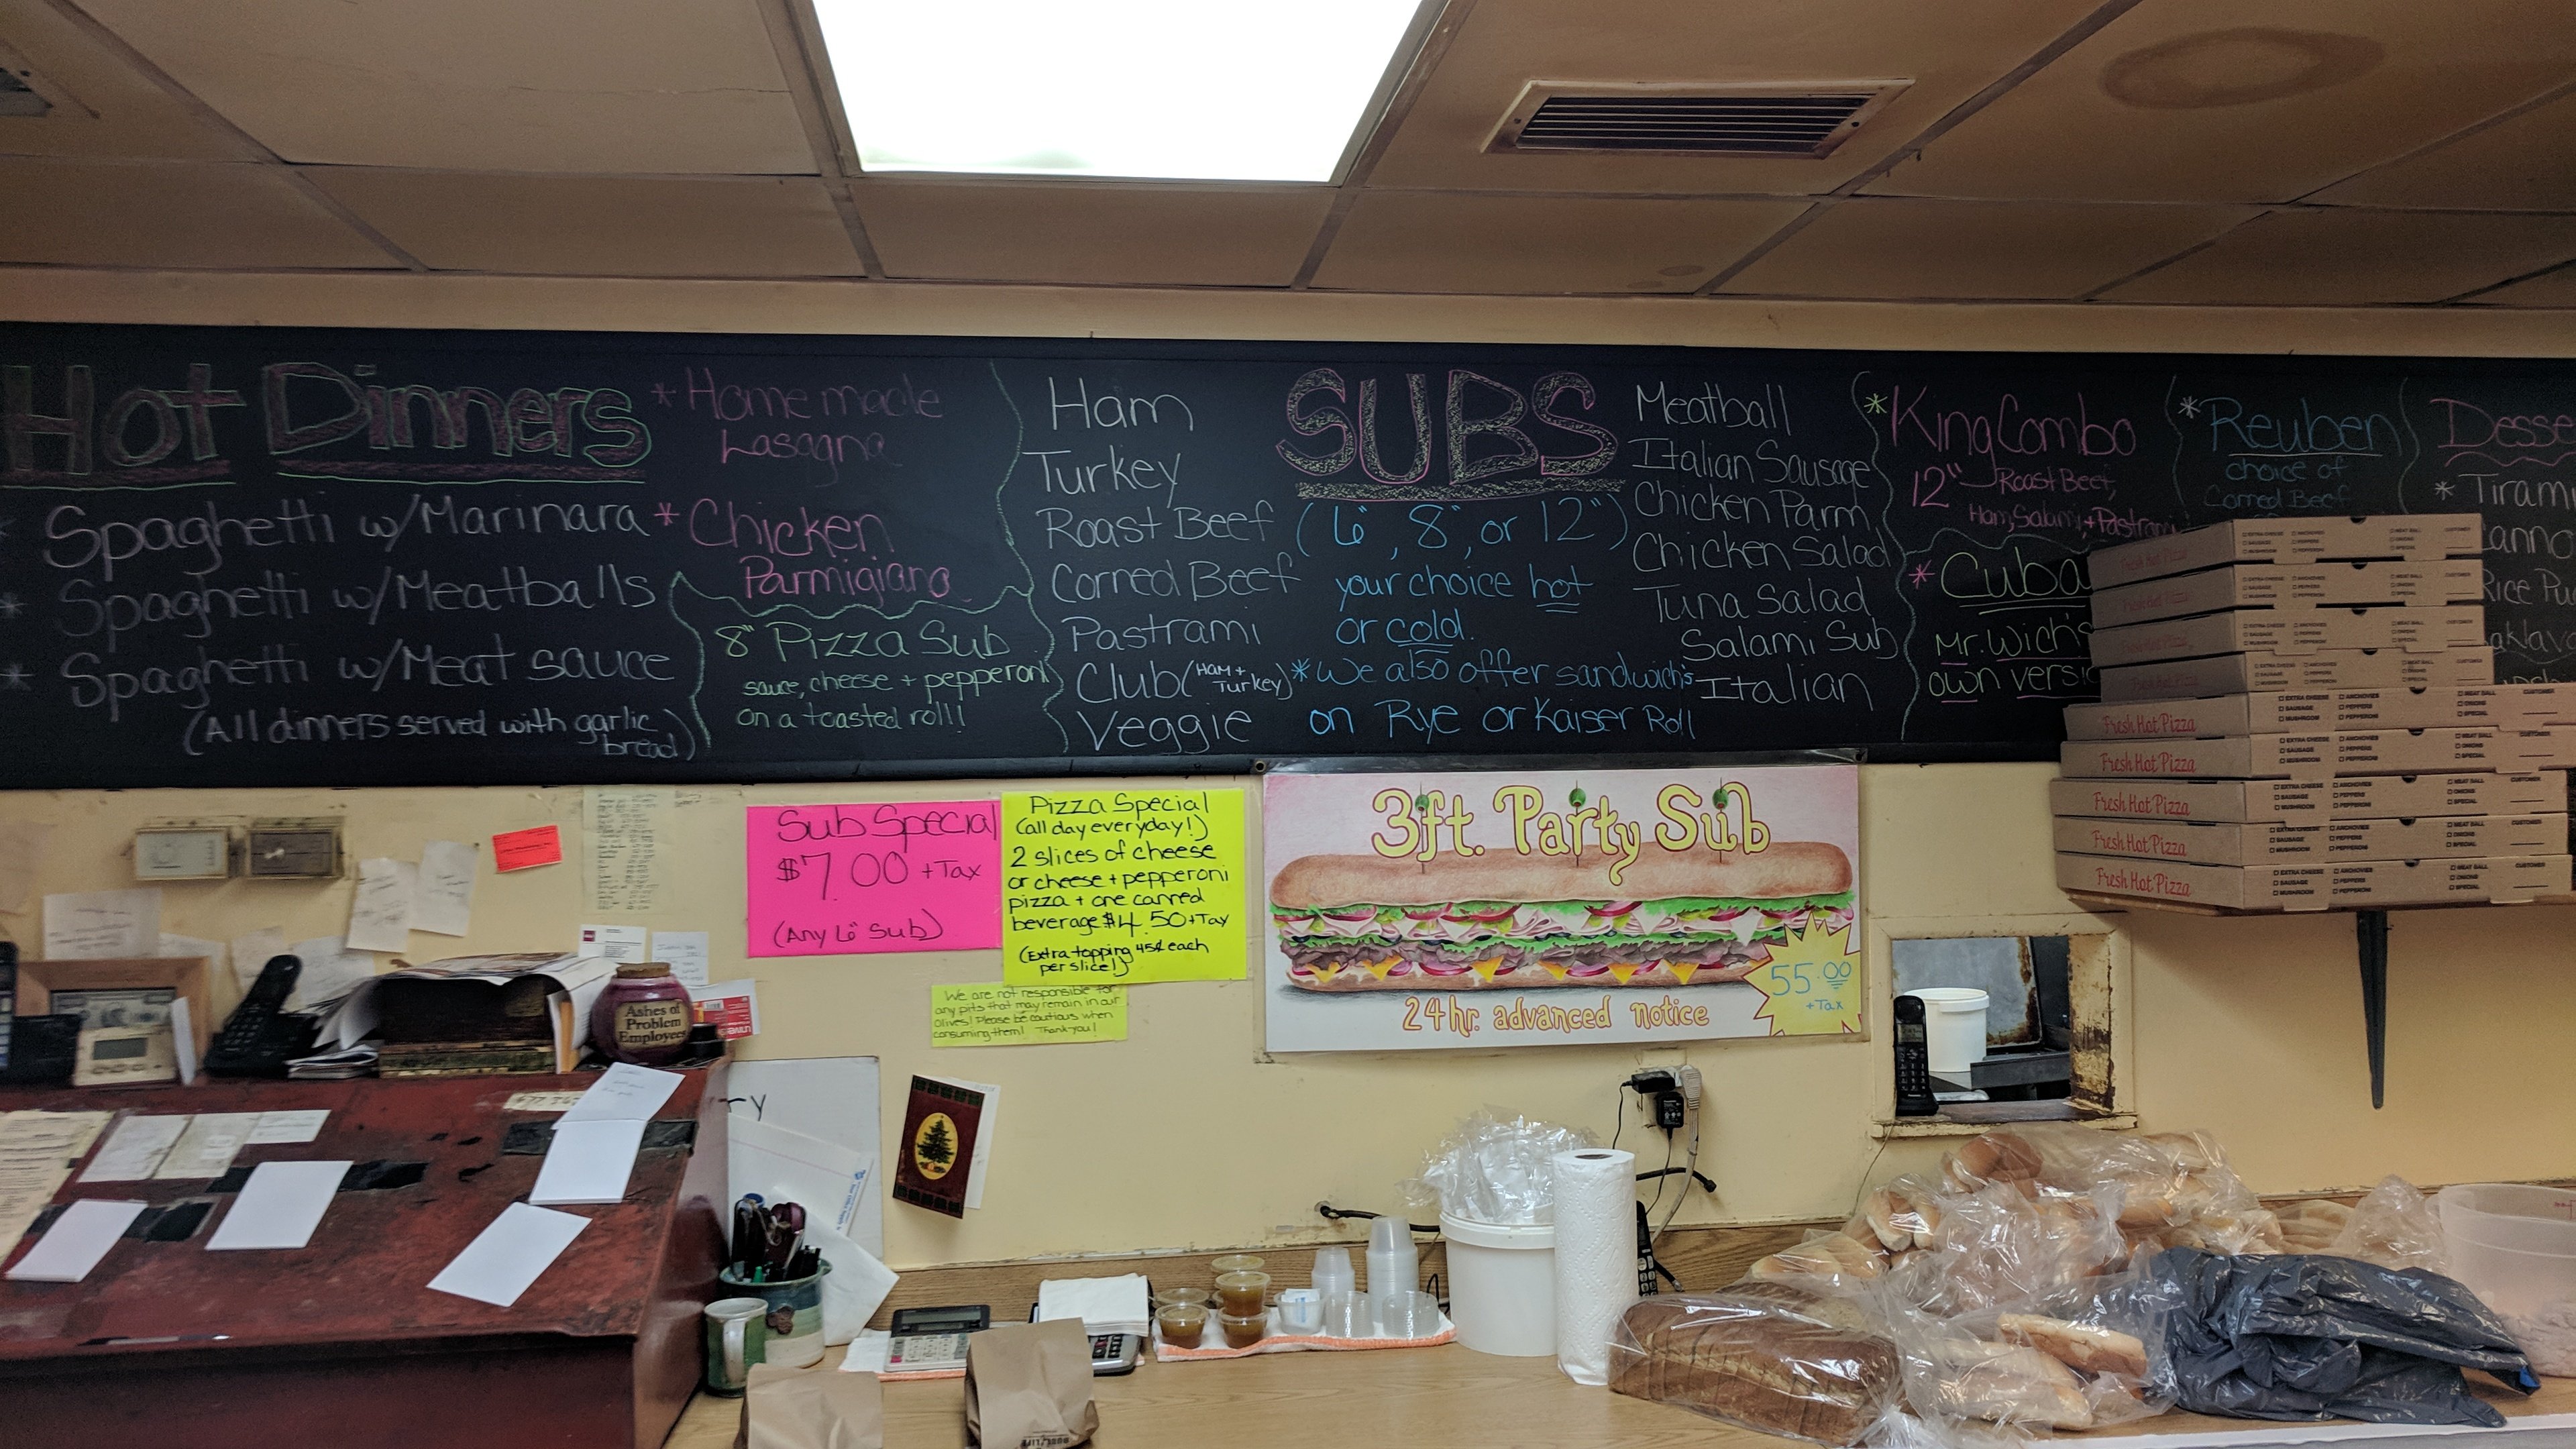 Hot Dinners
* Spaghetti w/Marinara
* Spaghetti w/Meatballs
* Spaghetti w/Meat sauce
(All dinners served with garlic
bread)
* Homemade
Lasagna
* Chicken
Parmigiana
8" Pizza Sub
sauce, cheese + pepperoni
on a toasted roll!
Ham
Turkey
Roast Beef
Corned Beef
Pastrami
Club (Ham +
Turkey)
Veggie
SUBS
(6", 8", or 12")
your choice hot
or cold.
* We also offer sandwich's
on Rye or Kaiser Roll
Meatball
Italian Sausage
Chicken Parm
Chicken Salad
Tuna Salad
Salami Sub
Italian
* King Combo
12" Roast Beef,
Ham, Salami, + Pastrami
* Cuba
Mr. Wich's
own versio
* Reuben
choice of
Corned Beef
Desse
* Tirami
anno
Rice Pu
aklava
Sub Special
$7.00 + Tax
(Any 6" Sub)
Pizza Special
(all day everyday!)
2 slices of cheese
or cheese + pepperoni
pizza + one canned
beverage $4.50 + Tax
(Extra topping 45¢ each
per slice!)
We are not responsible for
any pits that may remain in our
olives! Please be cautious when
consuming them! Thank you!
3ft. Party Sub
55.00
+ Tax
24hr. advanced notice
Ashes of
Problem
Employees
Fresh Hot Pizza
Fresh Hot Pizza
Fresh Hot Pizza
Fresh Hot Pizza
Fresh Hot Pizza
EXTRA CHEESE
SAUSAGE
MUSHROOM
ANCHOVIES
PEPPERS
PEPPERONI
MEAT BALL
ONIONS
SPECIAL
CUSTOMER